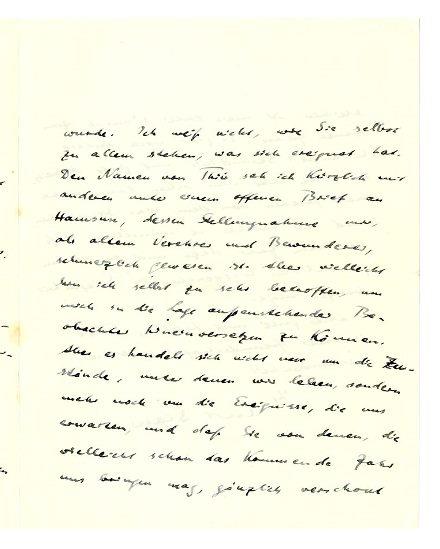 wurde. Ich weiß nicht, wie Sie selbst
zu allem stehen, was sich ereignet hat.
Den Namen von Ihnen sah ich kürzlich mit
anderen unter einem offenen Brief an
Hamsun, dessen Stellungnahme mir,
als altem Verehrer und Bewunderer,
schmerzlich gewesen ist. Aber vielleicht
bin ich selbst zu sehr betroffen, um
mich in die Lage außenstehender Be-
obachter hineinversetzen zu können.
Aber es handelt sich nicht nur um die Zu-
stände, unter denen wir leben, sondern
mehr noch um die Ereignisse, die uns
erwarten, und daß Sie von denen, die
vielleicht schon das kommende Jahr
uns bringen mag, gänzlich verschont